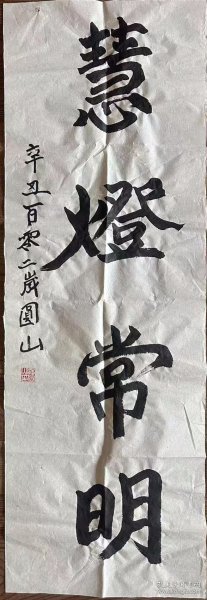 慧燈常明
辛丑百零二歲圓山